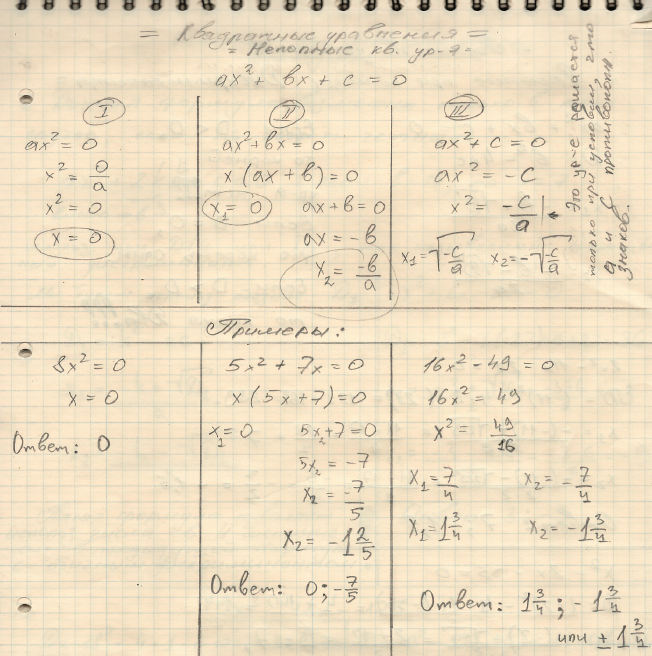 = Квадратные уравнения =
= Неполные кв. ур-я =
ax² + bx + c = 0
I
ax² = 0
x² = 0/a
x² = 0
x = 0
II
ax² + bx = 0
x (ax + b) = 0
x₁ = 0 ax + b = 0
ax = -b
x₂ = -b/a
III
ax² + c = 0
ax² = -c
x² = -c/a
x₁ = √(-c/a) x₂ = -√(-c/a)
Это ур-е решается
только при условии, что
a и c противополож.
знаков.
Примеры:
8x² = 0
x = 0
Ответ: 0
5x² + 7x = 0
x (5x + 7) = 0
x₁ = 0 5x₂ + 7 = 0
5x₂ = -7
x₂ = -7/5
x₂ = -1 2/5
Ответ: 0; -7/5
16x² - 49 = 0
16x² = 49
x² = 49/16
x₁ = 7/4 x₂ = -7/4
x₁ = 1 3/4 x₂ = -1 3/4
Ответ: 1 3/4; -1 3/4
или ± 1 3/4